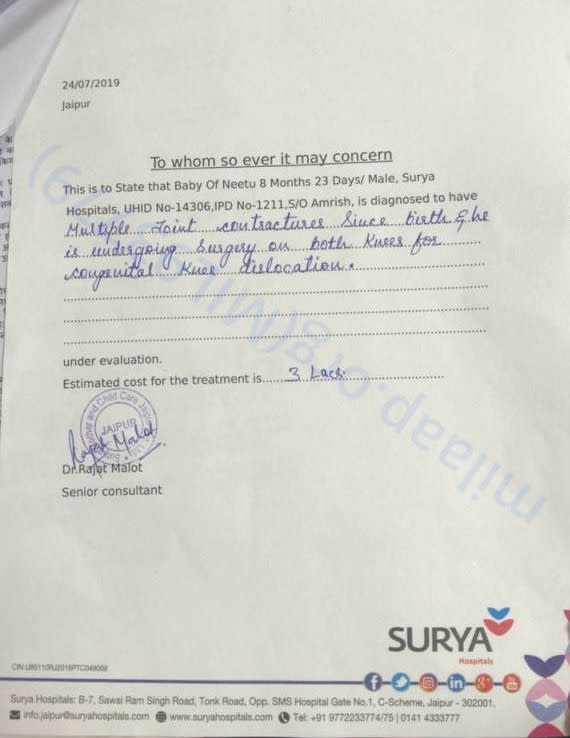 24/07/2019
Jaipur
To whom so ever it may concern
This is to State that Baby Of Neetu 8 Months 23 Days/ Male, Surya
Hospitals, UHID No-14306,IPD No-1211,S/O Amrish, is diagnosed to have
Multiple Joint contractures Since birth & he
is undergoing Surgery on both Knees for
congenital Knee dislocation.
under evaluation.
Estimated cost for the treatment is 3 Lacs.
JAIPUR
Rajat Malot
Dr.Rajat Malot
Senior consultant
milaap.org
SURYA
Hospitals
Surya Hospitals: B-7, Sawai Ram Singh Road, Tonk Road, Opp. SMS Hospital Gate No.1, C-Scheme, Jaipur - 302001.
info.jaipur@suryahospitals.com www.suryahospitals.com Tel: +91 9772233774/75 | 0141 4333777